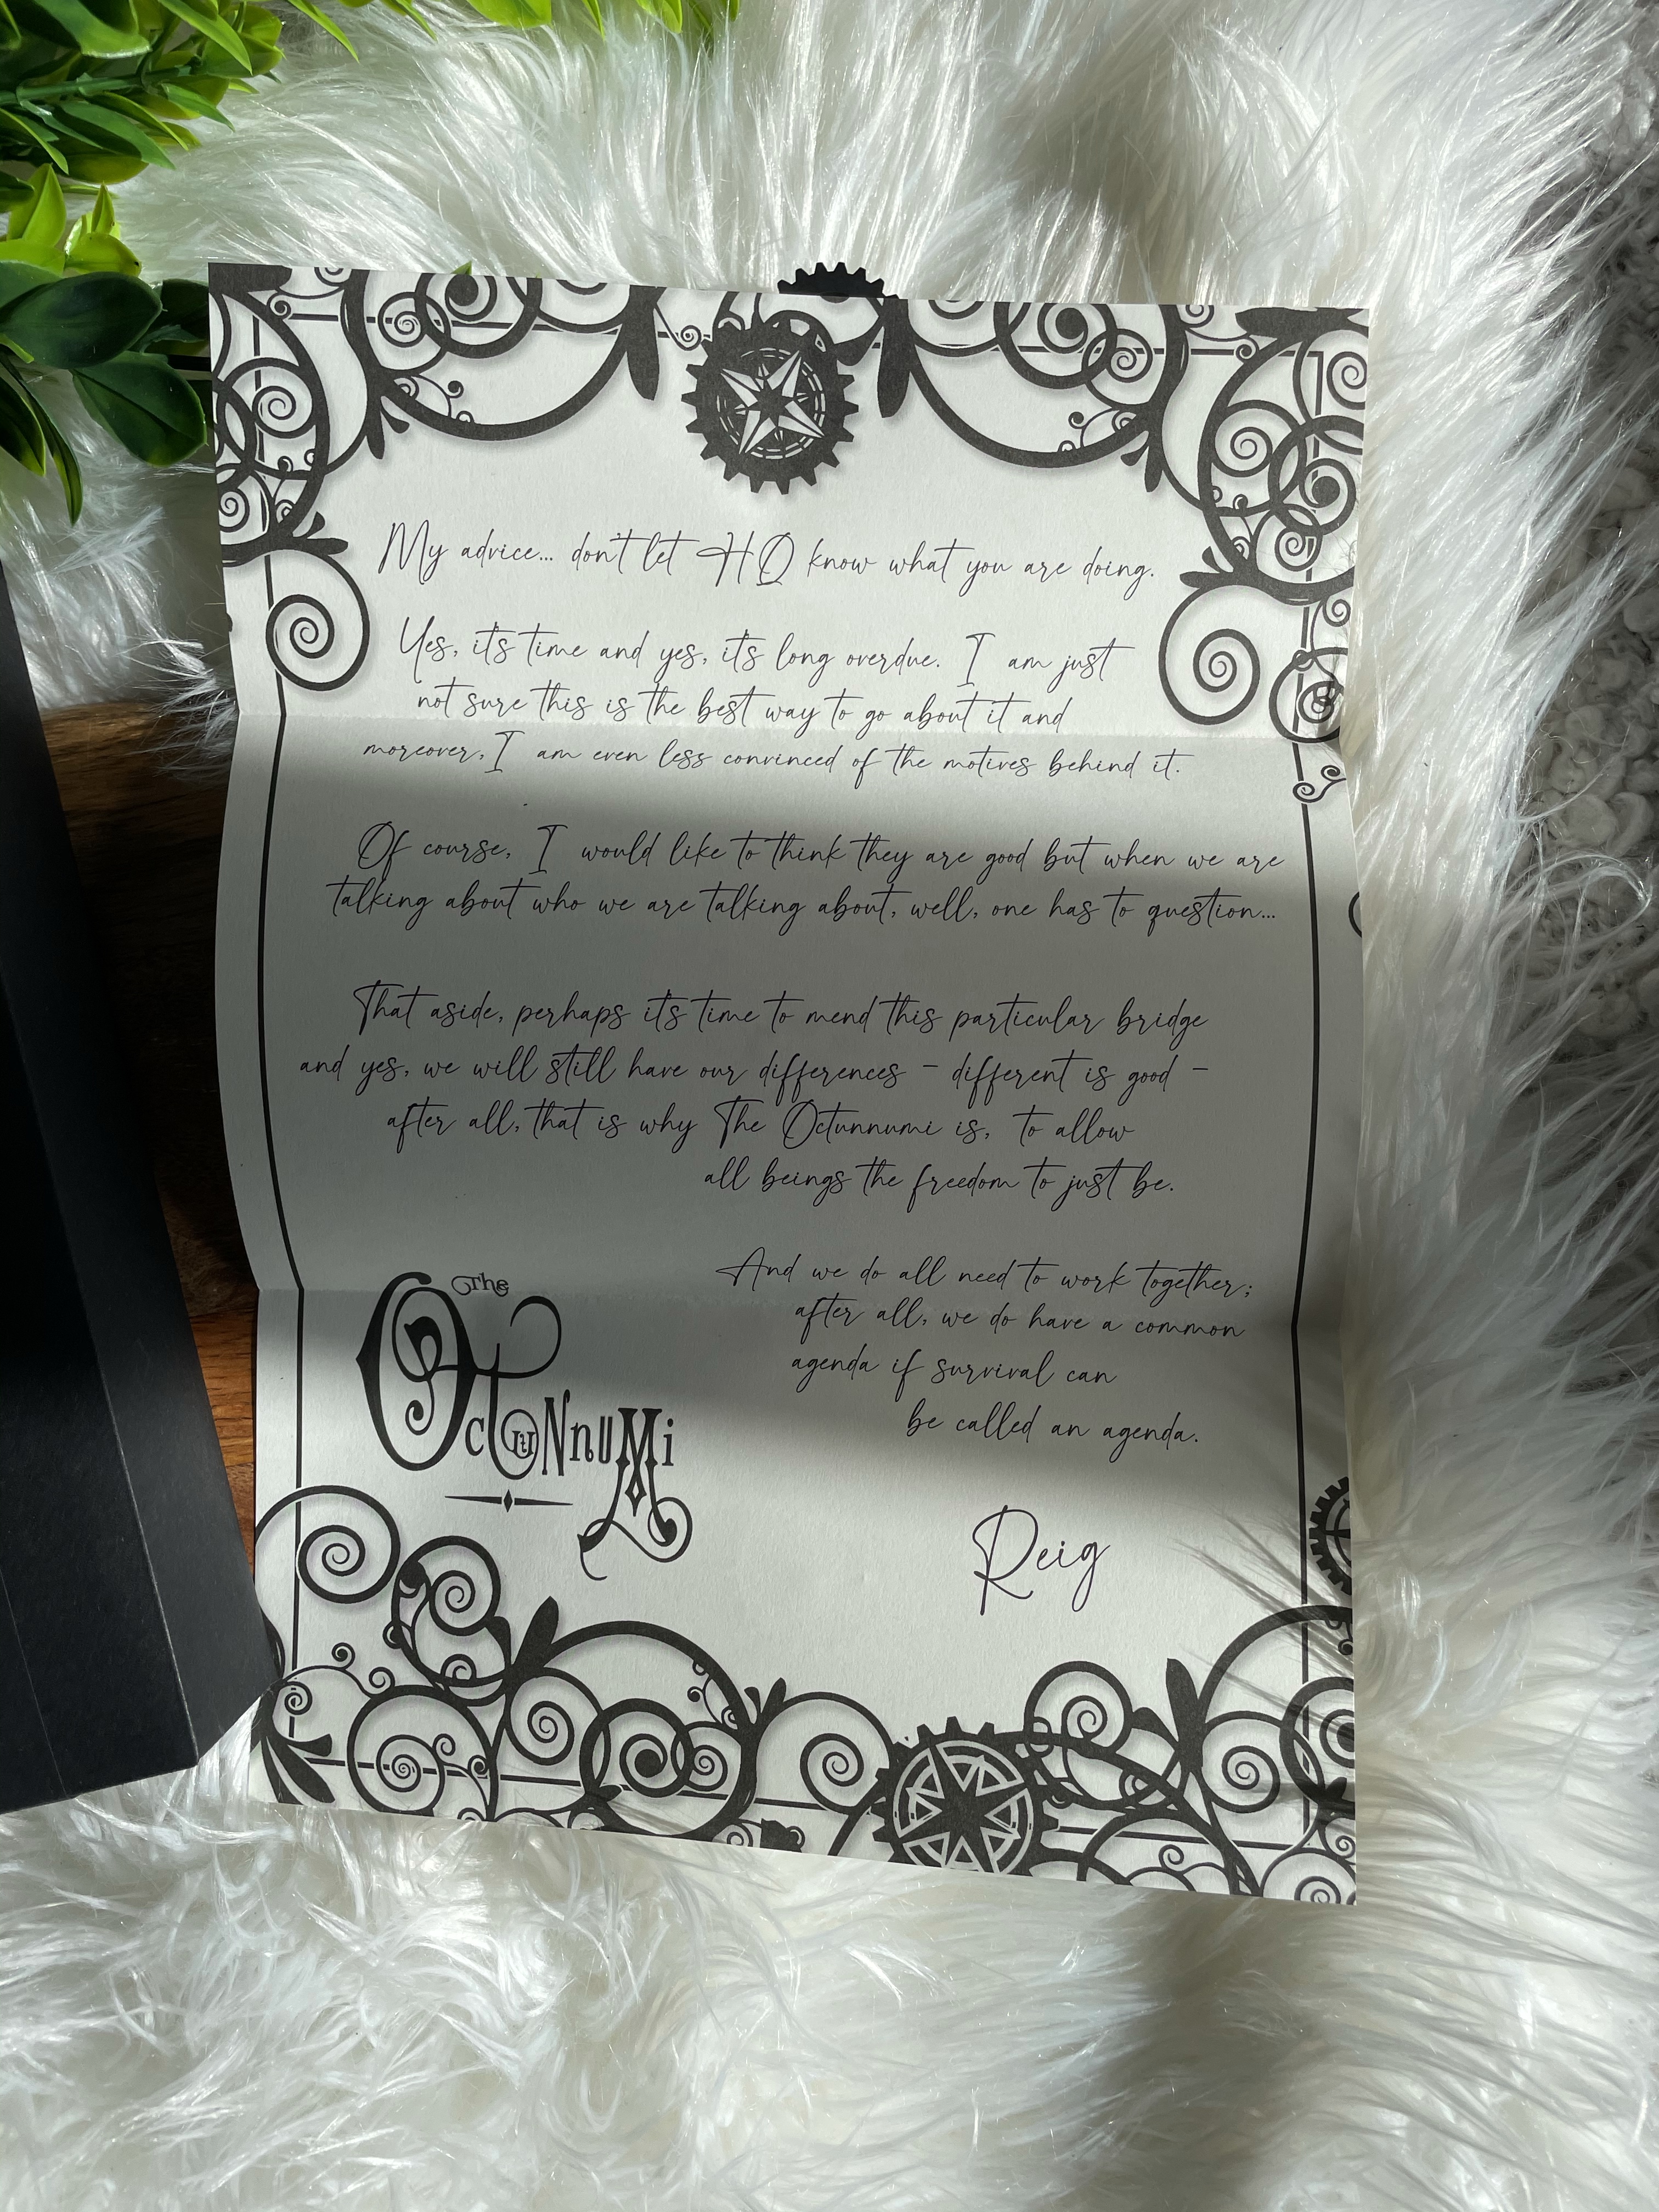 My advice... don't let HQ know what you are doing.
Yes, it's time and yes, it's long overdue. I am just
not sure this is the best way to go about it and
moreover, I am even less convinced of the motives behind it.
Of course, I would like to think they are good but when we are
talking about who we are talking about, well, one has to question...
That aside, perhaps it's time to mend this particular bridge
and yes, we will still have our differences - different is good -
after all, that is why The Octunnumi is, to allow
all beings the freedom to just be.
And we do all need to work together;
after all, we do have a common
agenda if survival can
be called an agenda.
The
OctuNnuMi
Reig